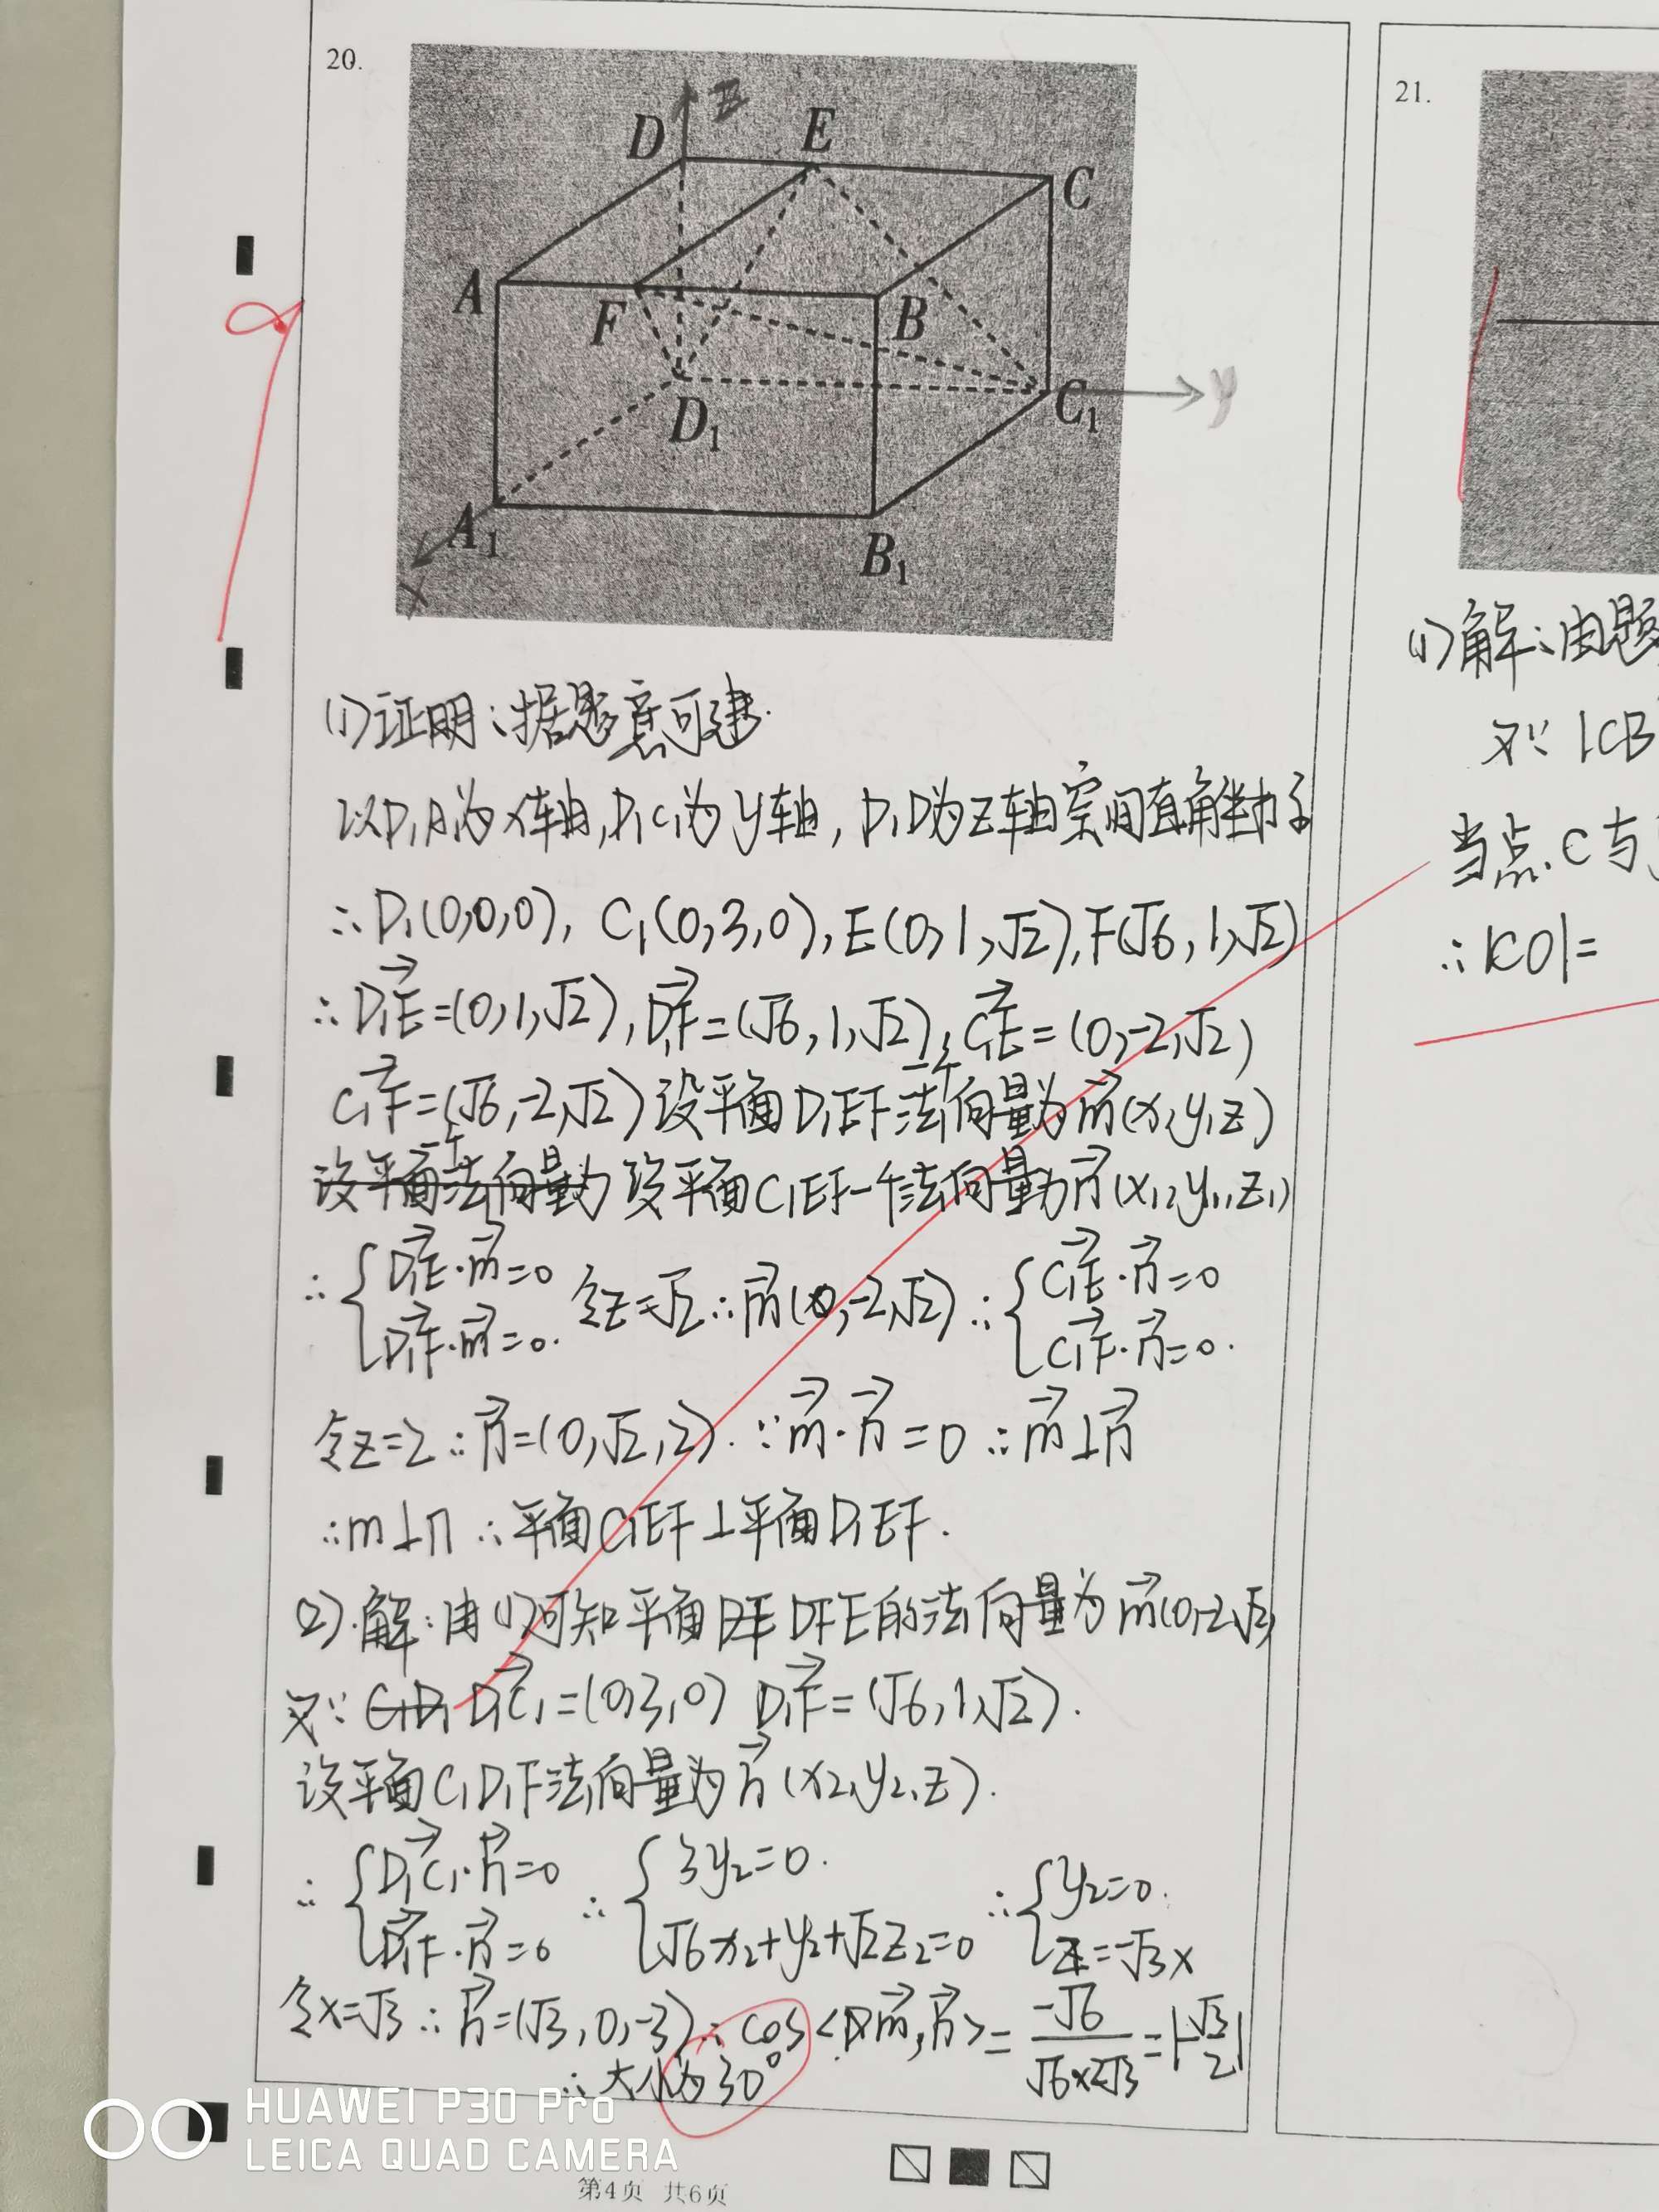 20.
D
E
C
z
A
F
B
D₁
C₁
y
A₁
B₁
x
(1)证明:据题意可建.
以D₁A₁为x轴,D₁C₁为y轴,D₁D为z轴空间直角坐标系
∴D₁(0,0,0), C₁(0,3,0), E(0,1,√2), F(√6,1,√2)
∴D₁E=(0,1,√2), D₁F=(√6,1,√2), C₁E=(0,-2,√2)
C₁F=(√6,-2,√2) 设平面D₁EF一个法向量为m(x,y,z)
设平面一个法向量为 设平面C₁EF一个法向量为n(x₁,y₁,z₁)
∴{D₁E·m=0 D₁F·m=0. 令z=√2 ∴m(0,-2,√2) ∴{C₁E·n=0 C₁F·n=0.
令z=2 ∴n=(0,√2,2). ∵m·n=0 ∴m⊥n
∴m⊥n ∴平面C₁EF⊥平面D₁EF.
(2).解:由(1)可知平面 DFE的法向量为m(0,-2,√2)
又∵C₁D₁ D₁C₁=(0,3,0) D₁F=(√6,1,√2).
设平面C₁D₁F法向量为h(x₂,y₂,z).
∴{D₁C₁·h=0 D₁F·h=0 ∴{3y₂=0. √6x₂+y₂+√2z₂=0 ∴{y₂=0. z=-√3x
令x=√3 ∴h=(√3,0,-3) ∴cos<m,h>=-√6/√6×2√3=|-√3/2|
∴大小为30°
21.
(1)解:由题
又∵|CB
当点C与
∴|CO|=
HUAWEI P30 Pro
LEICA QUAD CAMERA
第4页 共6页